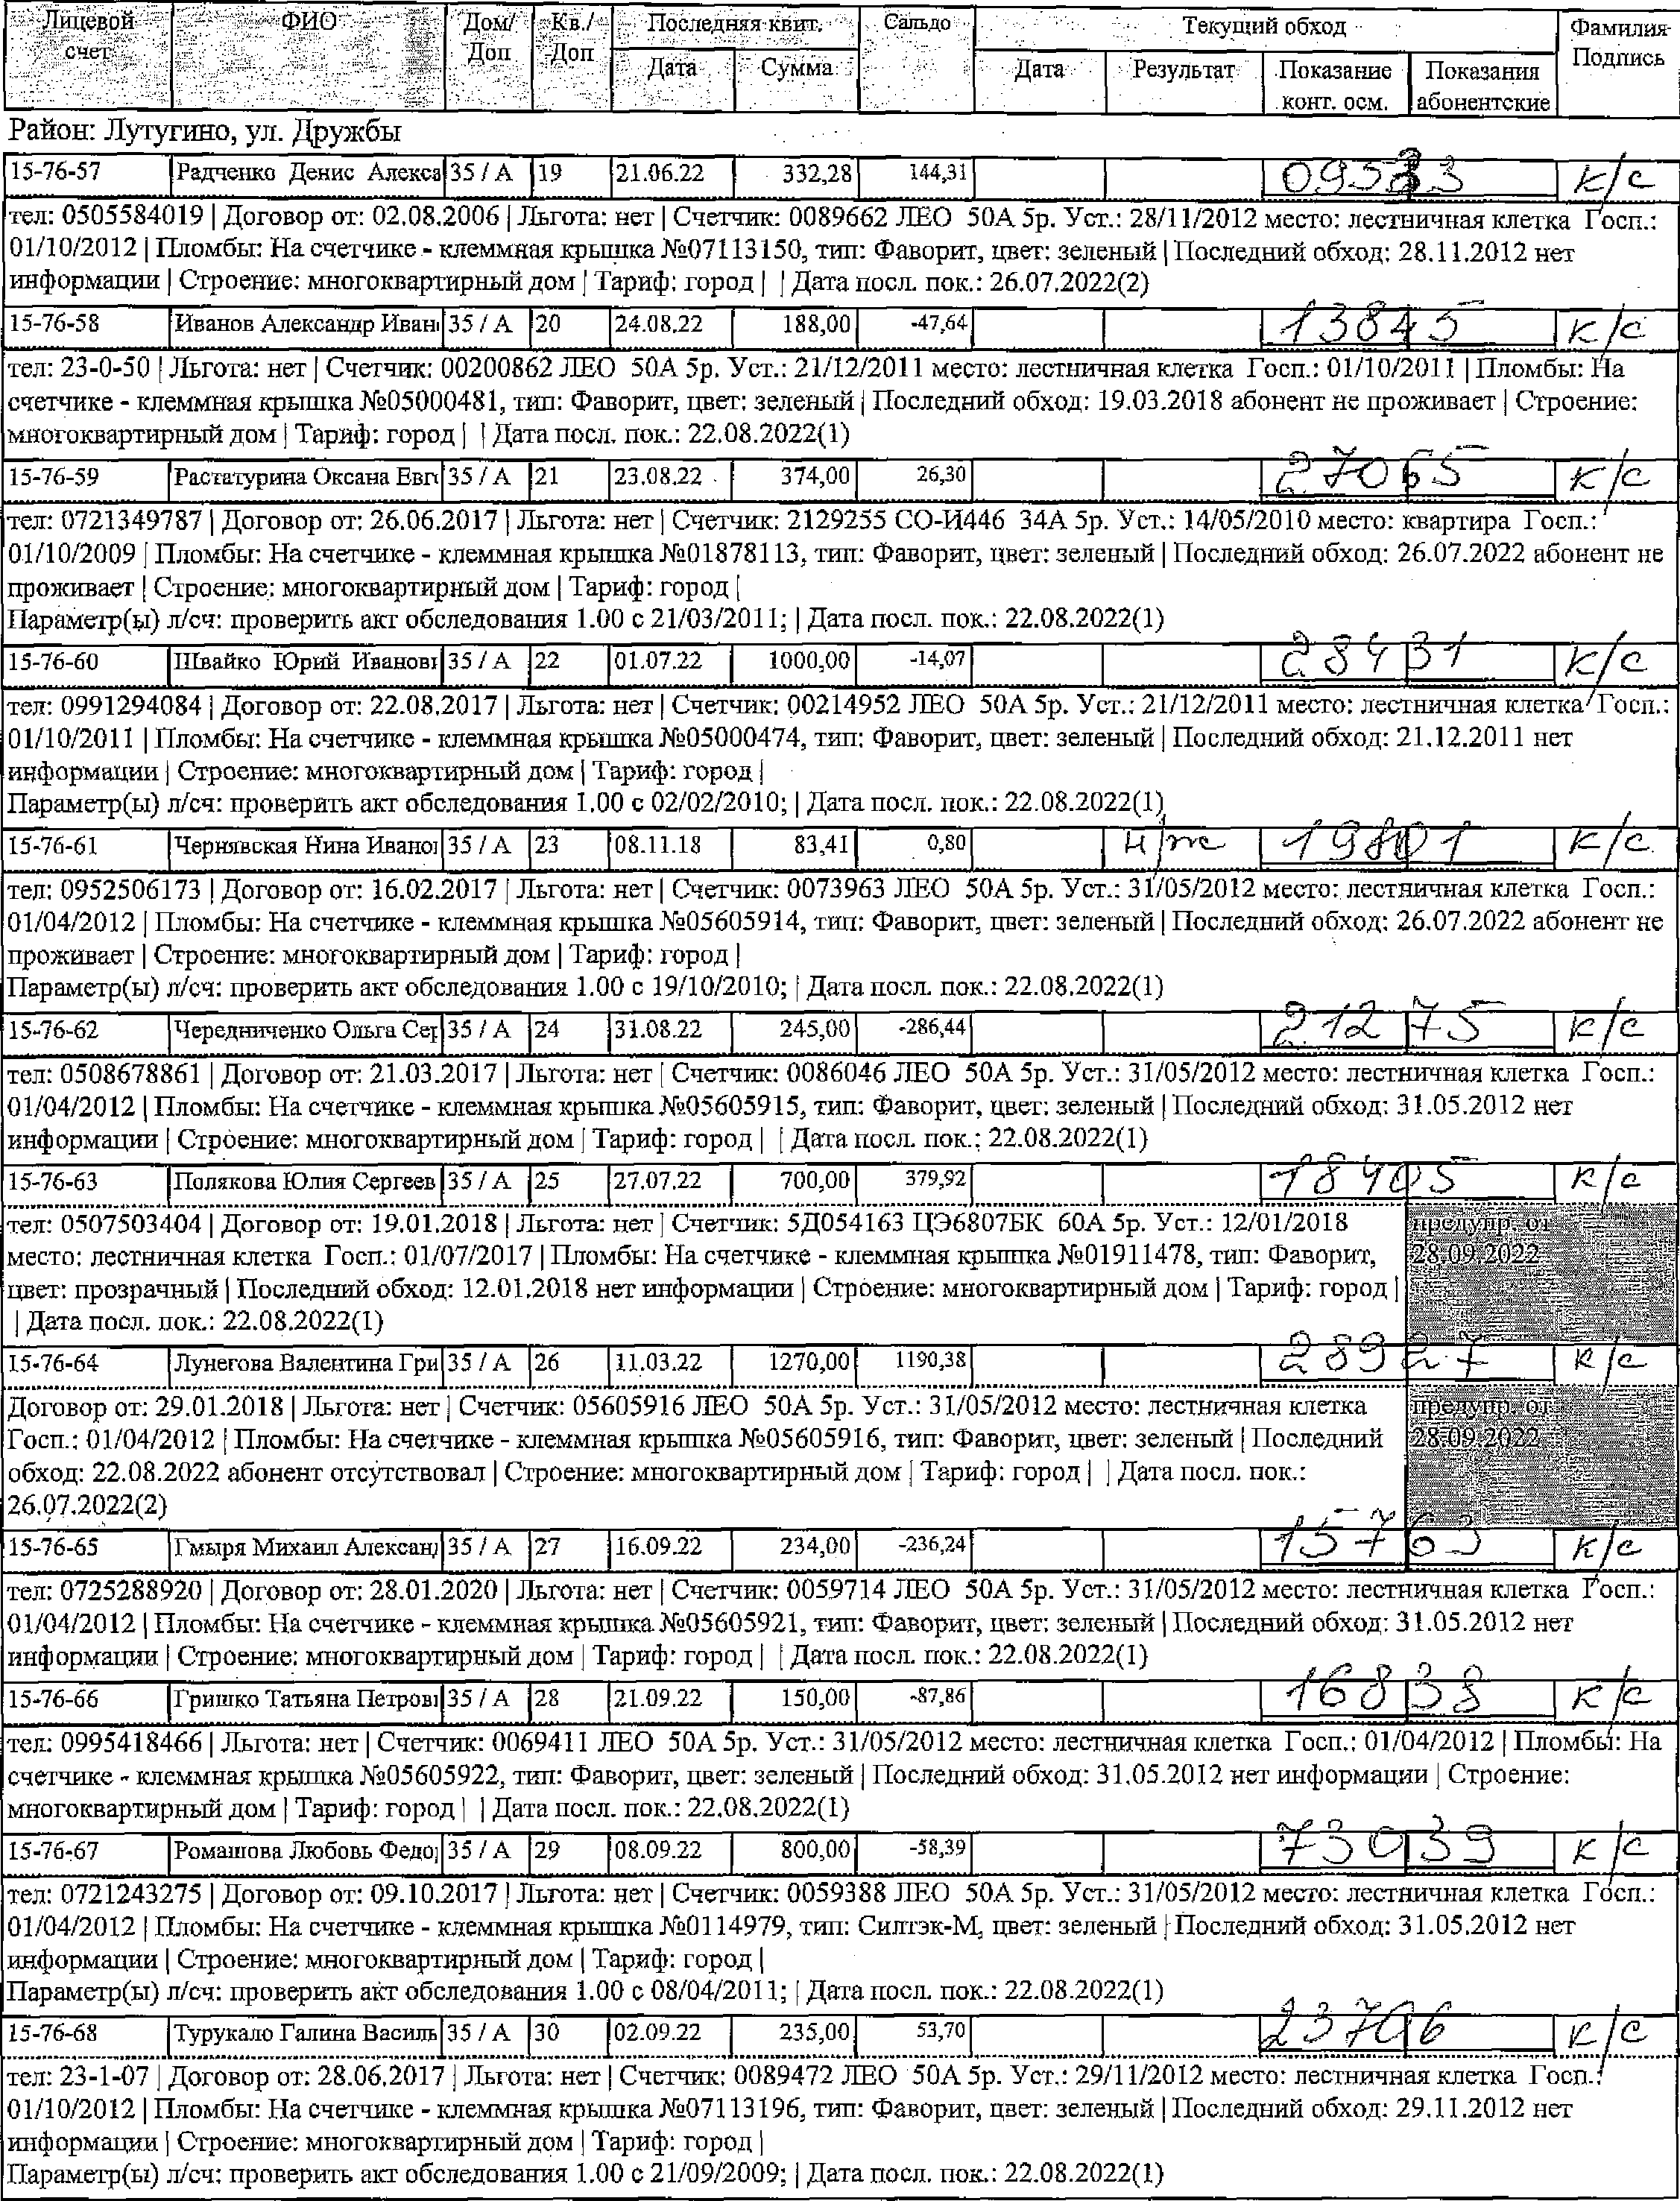 Лицевой счет | ФИО | Дом/ Доп | Кв./ Доп | Последняя квит. | Сальдо | Текущий обход | Фамилия Подпись
Дата | Сумма | Дата | Результат | Показание конт. осм. | Показания абонентские
Район: Лутугино, ул. Дружбы
15-76-57 | Радченко Денис Алекса | 35 / А | 19 | 21.06.22 | 332,28 | 144,31 | 09533 | к/с
тел: 0505584019 | Договор от: 02.08.2006 | Льгота: нет | Счетчик: 0089662 ЛЕО 50А 5р. Уст.: 28/11/2012 место: лестничная клетка Госп.:
01/10/2012 | Пломбы: На счетчике - клеммная крышка №07113150, тип: Фаворит, цвет: зеленый | Последний обход: 28.11.2012 нет
информации | Строение: многоквартирный дом | Тариф: город | | Дата посл. пок.: 26.07.2022(2)
15-76-58 | Иванов Александр Иван | 35 / А | 20 | 24.08.22 | 188,00 | -47,64 | 13845 | к/с
тел: 23-0-50 | Льгота: нет | Счетчик: 00200862 ЛЕО 50А 5р. Уст.: 21/12/2011 место: лестничная клетка Госп.: 01/10/2011 | Пломбы: На
счетчике - клеммная крышка №05000481, тип: Фаворит, цвет: зеленый | Последний обход: 19.03.2018 абонент не проживает | Строение:
многоквартирный дом | Тариф: город | | Дата посл. пок.: 22.08.2022(1)
15-76-59 | Растатурина Оксана Евг | 35 / А | 21 | 23.08.22 | 374,00 | 26,30 | 27065 | к/с
тел: 0721349787 | Договор от: 26.06.2017 | Льгота: нет | Счетчик: 2129255 СО-И446 34А 5р. Уст.: 14/05/2010 место: квартира Госп.:
01/10/2009 | Пломбы: На счетчике - клеммная крышка №01878113, тип: Фаворит, цвет: зеленый | Последний обход: 26.07.2022 абонент не
проживает | Строение: многоквартирный дом | Тариф: город |
Параметр(ы) л/сч: проверить акт обследования 1.00 с 21/03/2011; | Дата посл. пок.: 22.08.2022(1)
15-76-60 | Швайко Юрий Иванов | 35 / А | 22 | 01.07.22 | 1000,00 | -14,07 | 28431 | к/с
тел: 0991294084 | Договор от: 22.08.2017 | Льгота: нет | Счетчик: 00214952 ЛЕО 50А 5р. Уст.: 21/12/2011 место: лестничная клетка Госп.:
01/10/2011 | Пломбы: На счетчике - клеммная крышка №05000474, тип: Фаворит, цвет: зеленый | Последний обход: 21.12.2011 нет
информации | Строение: многоквартирный дом | Тариф: город |
Параметр(ы) л/сч: проверить акт обследования 1.00 с 02/02/2010; | Дата посл. пок.: 22.08.2022(1)
15-76-61 | Чернявская Нина Ивано | 35 / А | 23 | 08.11.18 | 83,41 | 0,80 | н/ж | 19801 | к/с
тел: 0952506173 | Договор от: 16.02.2017 | Льгота: нет | Счетчик: 0073963 ЛЕО 50А 5р. Уст.: 31/05/2012 место: лестничная клетка Госп.:
01/04/2012 | Пломбы: На счетчике - клеммная крышка №05605914, тип: Фаворит, цвет: зеленый | Последний обход: 26.07.2022 абонент не
проживает | Строение: многоквартирный дом | Тариф: город |
Параметр(ы) л/сч: проверить акт обследования 1.00 с 19/10/2010; | Дата посл. пок.: 22.08.2022(1)
15-76-62 | Чередниченко Ольга Сер | 35 / А | 24 | 31.08.22 | 245,00 | -286,44 | 21275 | к/с
тел: 0508678861 | Договор от: 21.03.2017 | Льгота: нет | Счетчик: 0086046 ЛЕО 50А 5р. Уст.: 31/05/2012 место: лестничная клетка Госп.:
01/04/2012 | Пломбы: На счетчике - клеммная крышка №05605915, тип: Фаворит, цвет: зеленый | Последний обход: 31.05.2012 нет
информации | Строение: многоквартирный дом | Тариф: город | | Дата посл. пок.: 22.08.2022(1)
15-76-63 | Полякова Юлия Сергеев | 35 / А | 25 | 27.07.22 | 700,00 | 379,92 | 18405 | к/с
тел: 0507503404 | Договор от: 19.01.2018 | Льгота: нет | Счетчик: 5Д054163 ЦЭ6807БК 60А 5р. Уст.: 12/01/2018 | предупр. от
место: лестничная клетка Госп.: 01/07/2017 | Пломбы: На счетчике - клеммная крышка №01911478, тип: Фаворит, | 28.09.2022
цвет: прозрачный | Последний обход: 12.01.2018 нет информации | Строение: многоквартирный дом | Тариф: город |
| Дата посл. пок.: 22.08.2022(1)
15-76-64 | Лунегова Валентина Гри | 35 / А | 26 | 11.03.22 | 1270,00 | 1190,38 | 28927 | к/с
Договор от: 29.01.2018 | Льгота: нет | Счетчик: 05605916 ЛЕО 50А 5р. Уст.: 31/05/2012 место: лестничная клетка | предупр. от
Госп.: 01/04/2012 | Пломбы: На счетчике - клеммная крышка №05605916, тип: Фаворит, цвет: зеленый | Последний | 28.09.2022
обход: 22.08.2022 абонент отсутствовал | Строение: многоквартирный дом | Тариф: город | | Дата посл. пок.:
26.07.2022(2)
15-76-65 | Гмыря Михаил Алексан | 35 / А | 27 | 16.09.22 | 234,00 | -236,24 | 15763 | к/с
тел: 0725288920 | Договор от: 28.01.2020 | Льгота: нет | Счетчик: 0059714 ЛЕО 50А 5р. Уст.: 31/05/2012 место: лестничная клетка Госп.:
01/04/2012 | Пломбы: На счетчике - клеммная крышка №05605921, тип: Фаворит, цвет: зеленый | Последний обход: 31.05.2012 нет
информации | Строение: многоквартирный дом | Тариф: город | | Дата посл. пок.: 22.08.2022(1)
15-76-66 | Гришко Татьяна Петров | 35 / А | 28 | 21.09.22 | 150,00 | -87,86 | 16838 | к/с
тел: 0995418466 | Льгота: нет | Счетчик: 0069411 ЛЕО 50А 5р. Уст.: 31/05/2012 место: лестничная клетка Госп.: 01/04/2012 | Пломбы: На
счетчике - клеммная крышка №05605922, тип: Фаворит, цвет: зеленый | Последний обход: 31.05.2012 нет информации | Строение:
многоквартирный дом | Тариф: город | | Дата посл. пок.: 22.08.2022(1)
15-76-67 | Ромашова Любовь Федо | 35 / А | 29 | 08.09.22 | 800,00 | -58,39 | 73039 | к/с
тел: 0721243275 | Договор от: 09.10.2017 | Льгота: нет | Счетчик: 0059388 ЛЕО 50А 5р. Уст.: 31/05/2012 место: лестничная клетка Госп.:
01/04/2012 | Пломбы: На счетчике - клеммная крышка №0114979, тип: Силтэк-М, цвет: зеленый | Последний обход: 31.05.2012 нет
информации | Строение: многоквартирный дом | Тариф: город |
Параметр(ы) л/сч: проверить акт обследования 1.00 с 08/04/2011; | Дата посл. пок.: 22.08.2022(1)
15-76-68 | Турукало Галина Василь | 35 / А | 30 | 02.09.22 | 235,00 | 53,70 | к/с
тел: 23-1-07 | Договор от: 28.06.2017 | Льгота: нет | Счетчик: 0089472 ЛЕО 50А 5р. Уст.: 29/11/2012 место: лестничная клетка Госп.:
01/10/2012 | Пломбы: На счетчике - клеммная крышка №07113196, тип: Фаворит, цвет: зеленый | Последний обход: 29.11.2012 нет
информации | Строение: многоквартирный дом | Тариф: город |
Параметр(ы) л/сч: проверить акт обследования 1.00 с 21/09/2009; | Дата посл. пок.: 22.08.2022(1)